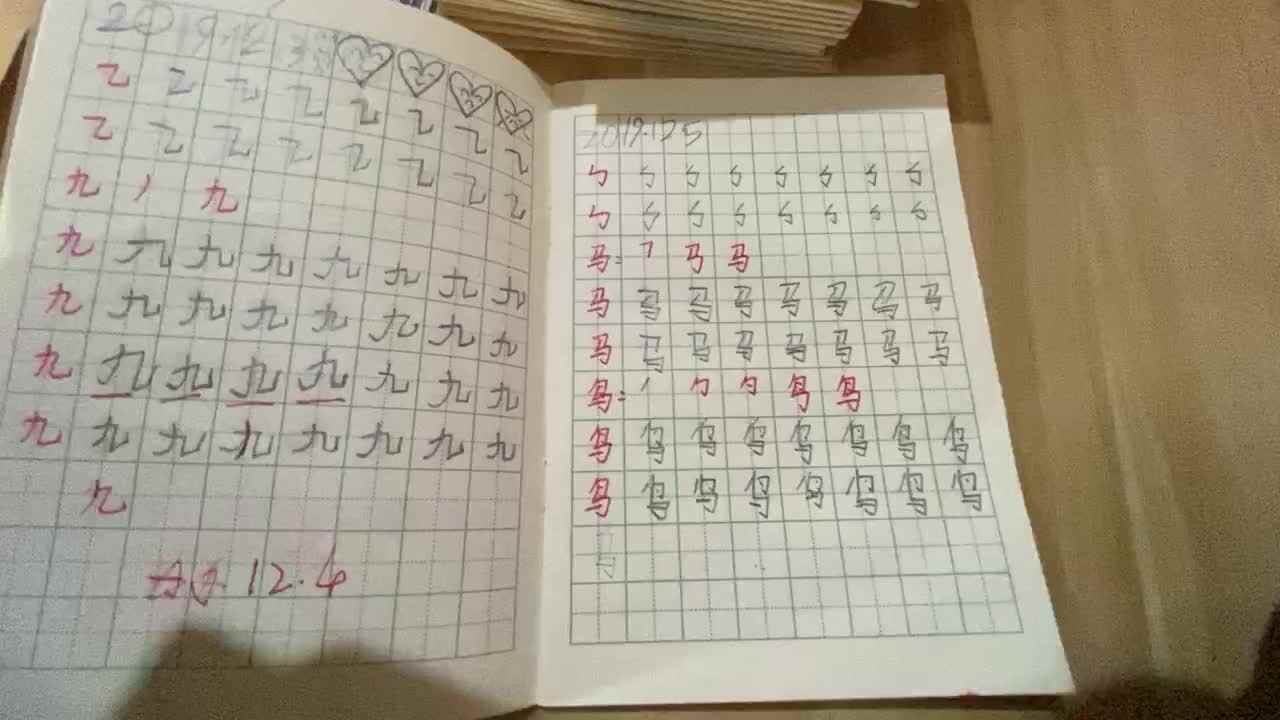 2019.12 3
乙 乙 乙 乙 乙 乙 乙 乙
乙 乙 乙 乙 乙 乙 乙 乙
九 丿 九
九 九 九 九 九 九 九 九
九 九 九 九 九 九 九 九
九 九 九 九 九 九 九 九
九 九 九 九 九 九 九 九
九
12.4
2019.12 5
ㄣ ㄣ ㄣ ㄣ ㄣ ㄣ ㄣ ㄣ
ㄣ ㄣ ㄣ ㄣ ㄣ ㄣ ㄣ ㄣ
马: ㇕ 马 马
马 马 马 马 马 马 马 马
马 马 马 马 马 马 马 马
鸟: 丿 勹 勺 鸟 鸟
鸟 鸟 鸟 鸟 鸟 鸟 鸟 鸟
鸟 鸟 鸟 鸟 鸟 鸟 鸟 鸟